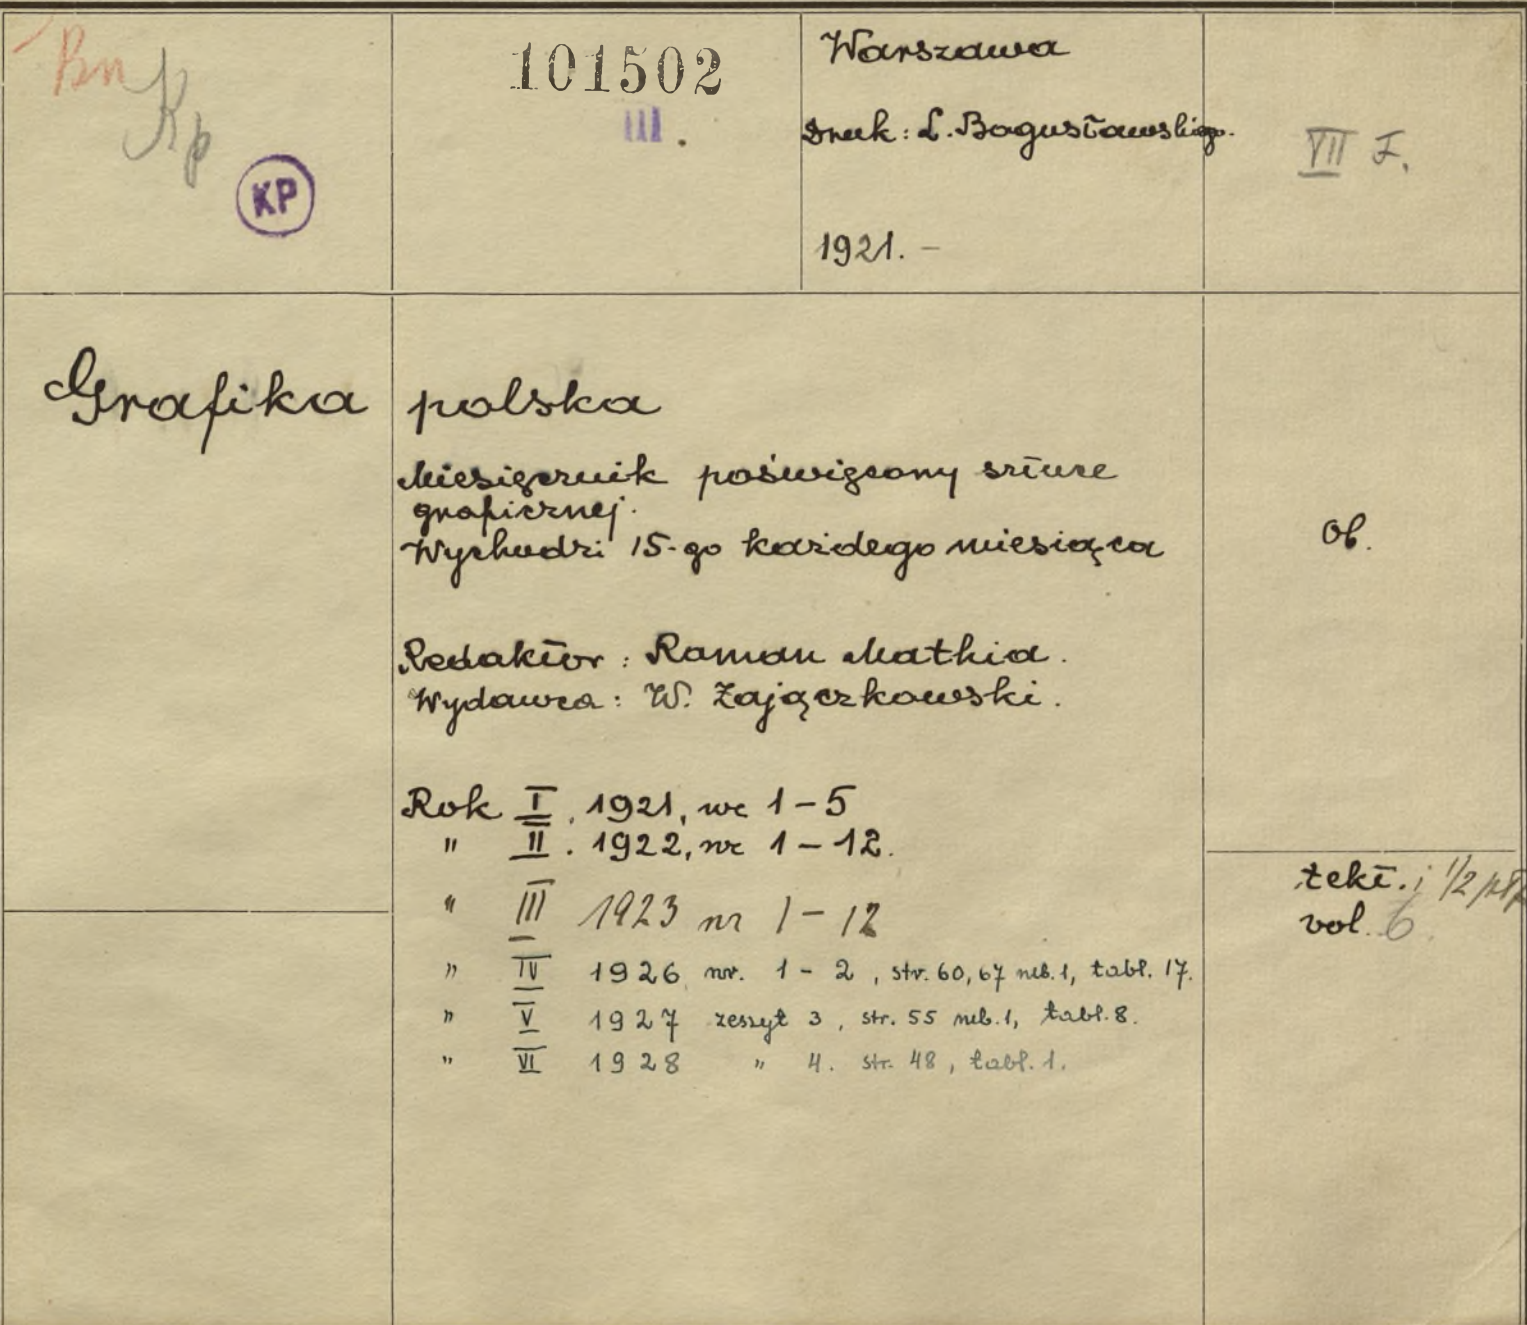 Bn
Kp
KP
101502
III.
Warszawa
Druk: L. Bogusławskiego.
1921. –
VII F.
Grafika polska
Miesięcznik poświęcony sztuce
graficznej.
Wychodzi 15-go każdego miesiąca
Ob.
Redaktor: Roman Mathia.
Wydawca: W. Zajączkowski.
Rok I. 1921, nr 1-5
" II. 1922, nr 1-12.
" III 1923 nr 1-12
" IV 1926 nr. 1-2, str. 60, 67 nlb. 1, tabl. 17.
" V 1927 zeszyt 3, str. 55 nlb. 1, tabl. 8.
" VI 1928 " 4. str. 48, tabl. 1.
tekt. i 1/2
vol. 6.